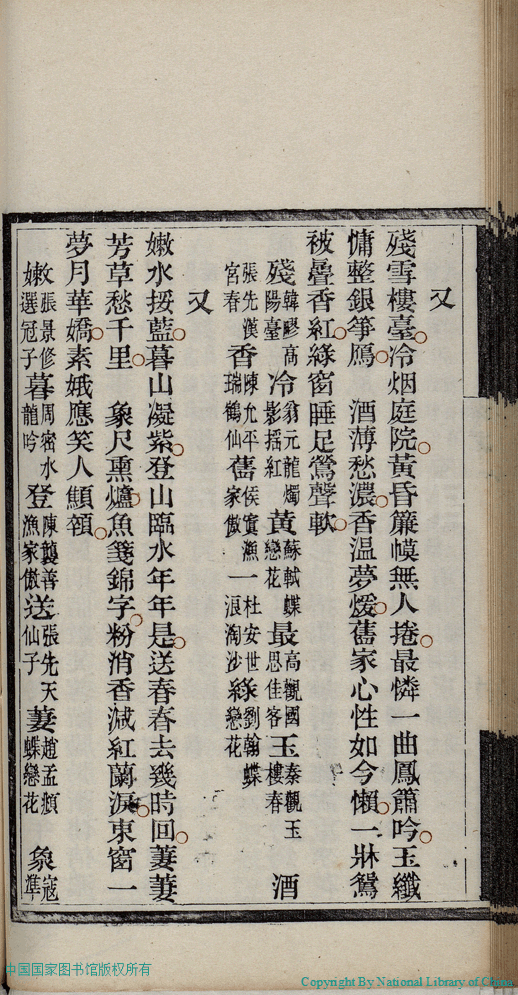 又
殘雪樓臺冷烟庭院黃昏簾幙無人捲最憐一曲鳳簫吟玉纖
慵整銀箏鴈　酒薄愁濃香温夢煖舊家心性如今懶一牀鴛
被疊香紅綠窗睡足鶯聲軟
殘韓疁高陽臺　冷翁元龍燭影搖紅　黃蘇軾蝶戀花　最高觀國思佳客　玉秦觀玉樓春　酒
張先漢宮春　香陳允平瑞鶴仙　舊侯寘漁家傲　一杜安世浪淘沙　綠劉翰蝶戀花
又
嫩水挼藍暮山凝紫登山臨水年年是送春春去幾時回萋萋
芳草愁千里　象尺熏爐魚箋錦字粉消香減紅蘭淚東窗一
夢月華嬌素娥應笑人顦顇
嫩張景修選冠子　暮周密水龍吟　登陳龔善漁家傲　送張先天仙子　萋趙孟頫蝶戀花　象寇準
中国国家图书馆版权所有
Copyright By National Library of China